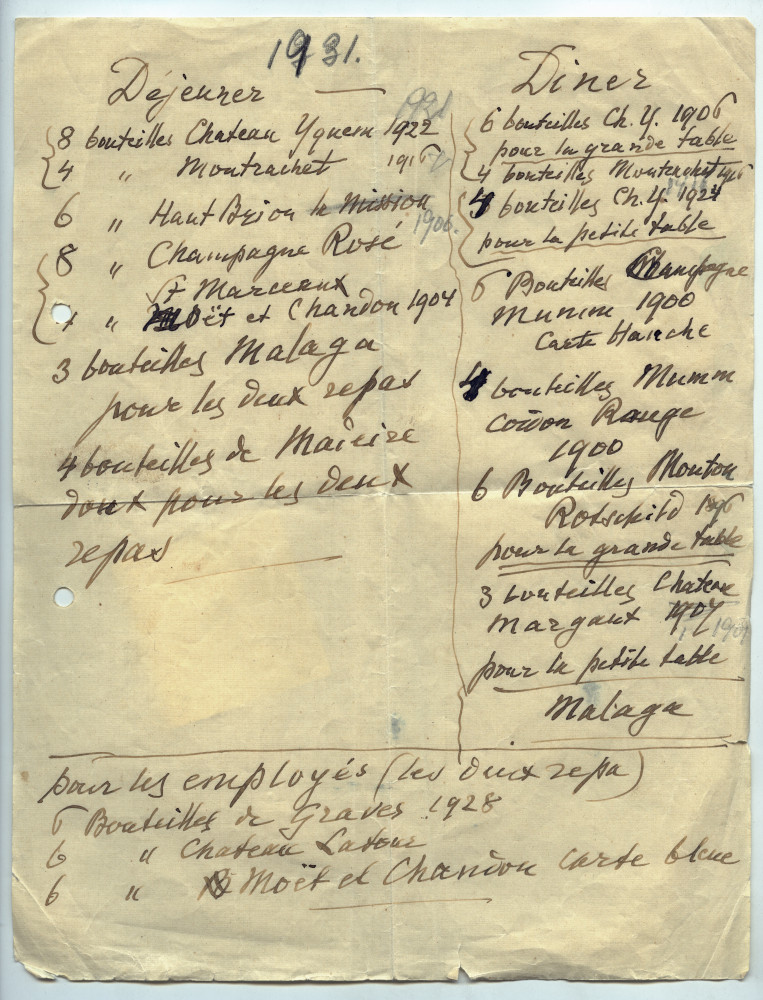 1931.
Déjeuner
8 bouteilles Chateau Yquem 1922
4 " Montrachet 1916
6 " Haut Brion la Mission
1906.
8 " Champagne Rosé
St Marceaux
4 " Moët et Chandon 1904
3 bouteilles Malaga
pour les deux repas
4 bouteilles de Madeire
doux pour les deux
repas
Diner
6 bouteilles Ch. Y. 1906
pour la grande table
4 bouteilles Montrachet 1916
4 bouteilles Ch. Y. 1924
pour la petite table
6 Bouteilles Champagne
Mumm 1900
Carte blanche
4 bouteilles Mumm
Cordon Rouge
1900
6 Bouteilles Mouton
Rotschild
pour la grande table
3 bouteilles Chateau
Margaux 1907
pour la petite table
Malaga
pour les employés (les deux repa)
6 Bouteilles de Graves 1928
6 " Chateau Latour
6 " Moët et Chandon carte bleue